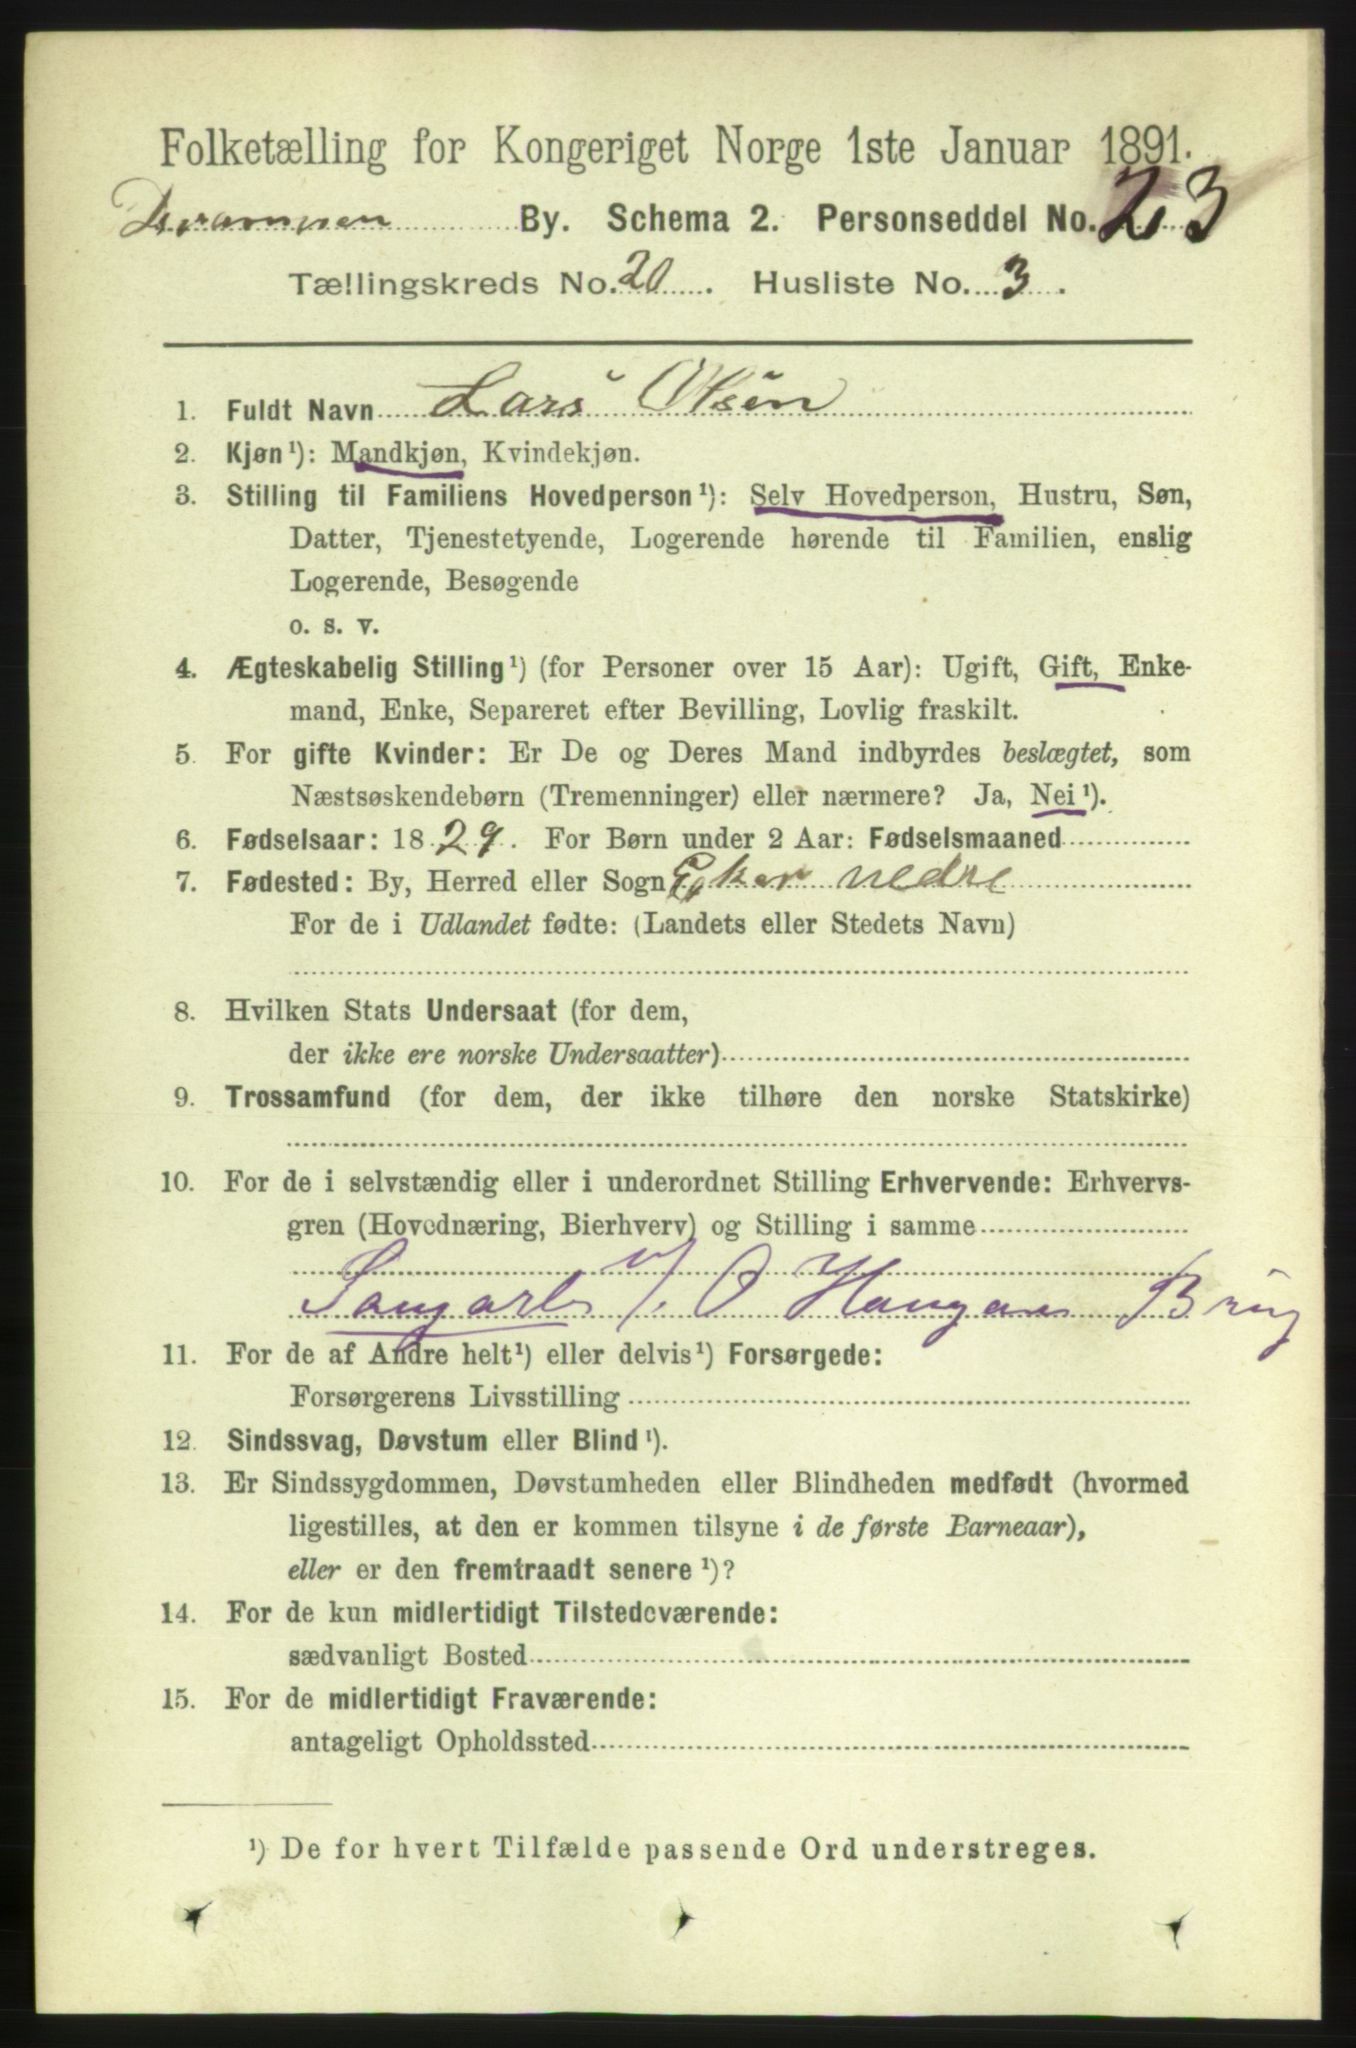 Folketælling for Kongeriget Norge 1ste Januar 1891.
Drammen By. Schema 2. Personseddel No. 23
Tællingskreds No. 20. Husliste No. 3.
1. Fuldt Navn Lars Olsen
2. Kjøn¹): Mandkjøn, Kvindekjøn.
3. Stilling til Familiens Hovedperson¹): Selv Hovedperson, Hustru, Søn,
Datter, Tjenestetyende, Logerende hørende til Familien, enslig
Logerende, Besøgende
o. s. v.
4. Ægteskabelig Stilling¹) (for Personer over 15 Aar): Ugift, Gift, Enke-
mand, Enke, Separeret efter Bevilling, Lovlig fraskilt.
5. For gifte Kvinder: Er De og Deres Mand indbyrdes beslægtet, som
Næstsøskendebørn (Tremenninger) eller nærmere? Ja, Nei¹).
6. Fødselsaar: 1829. For Børn under 2 Aar: Fødselsmaaned
7. Fødested: By, Herred eller Sogn Eker nedre
For de i Udlandet fødte: (Landets eller Stedets Navn)
8. Hvilken Stats Undersaat (for dem,
der ikke ere norske Undersaatter)
9. Trossamfund (for dem, der ikke tilhøre den norske Statskirke)
10. For de i selvstændig eller i underordnet Stilling Erhvervende: Erhvervs-
gren (Hovednæring, Bierhverv) og Stilling i samme
Saugarb V/ O Haugans Brug
11. For de af Andre helt¹) eller delvis¹) Forsørgede:
Forsørgerens Livsstilling
12. Sindssvag, Døvstum eller Blind¹).
13. Er Sindssygdommen, Døvstumheden eller Blindheden medfødt (hvormed
ligestilles, at den er kommen tilsyne i de første Barneaar),
eller er den fremtraadt senere¹)?
14. For de kun midlertidigt Tilstedeværende:
sædvanligt Bosted
15. For de midlertidigt Fraværende:
antageligt Opholdssted
¹) De for hvert Tilfælde passende Ord understreges.